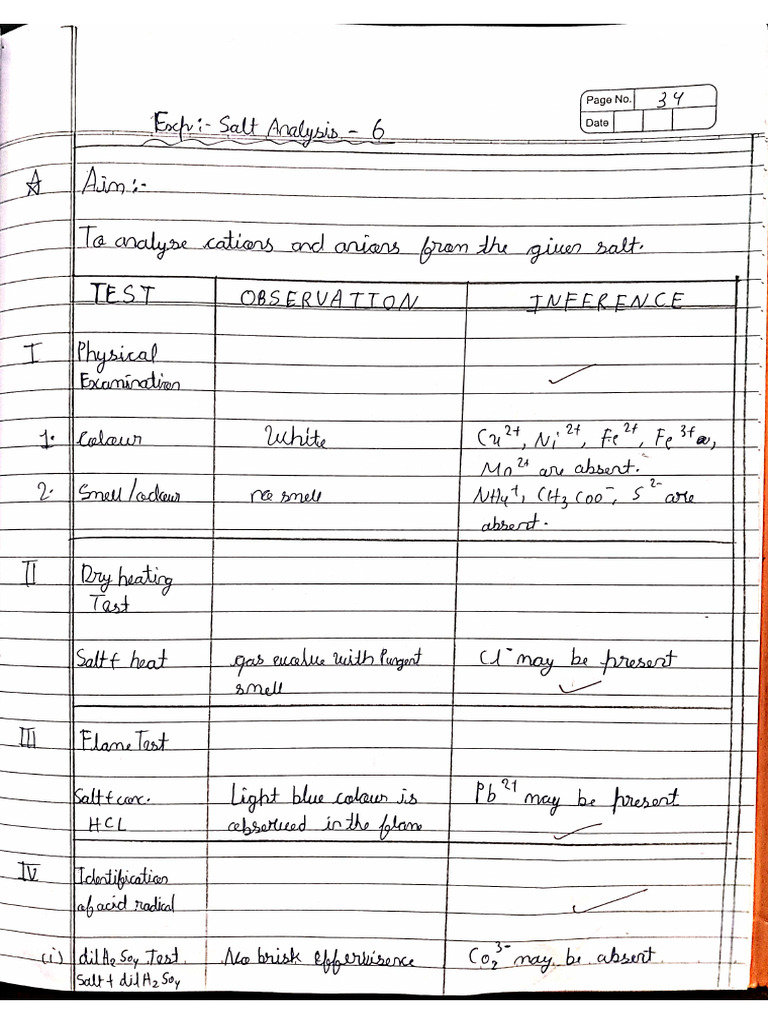 Page No. 34
Date
Exp:- Salt Analysis - 6
Aim:-
To analyse cations and anions from the given salt.
TEST OBSERVATION INFERENCE
I Physical
Examination
1. Colour White Cu²⁺, Ni²⁺, Fe²⁺, Fe³⁺,
Mn²⁺ are absent.
2. Smell/odour no smell NH₄⁺, CH₃COO⁻, S²⁻ are
absent.
II Dry heating
Test
Salt + heat gas evolve with Pungent Cl⁻ may be present
smell
III Flame Test
Salt + conc. Light blue colour is Pb²⁺ may be present
HCL observed in the flame
IV Identification
of acid radical
(i) dil H₂SO₄ Test No brisk effervisence CO₂³⁻ may be absent
Salt + dil H₂SO₄